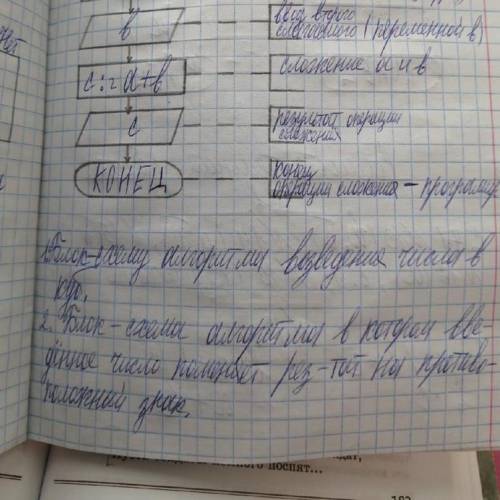 в
ввод второго
слагаемого (переменной в)
с := а+в
сложение а и в
с
результат операции
сложения
КОНЕЦ
конец
операции сложения - программы
1. Блок-схему алгоритма возведения числа в
куб.
2. Блок-схема алгоритма в котором вве-
дённое число поменяет рез-тат на противо-
положный знак.